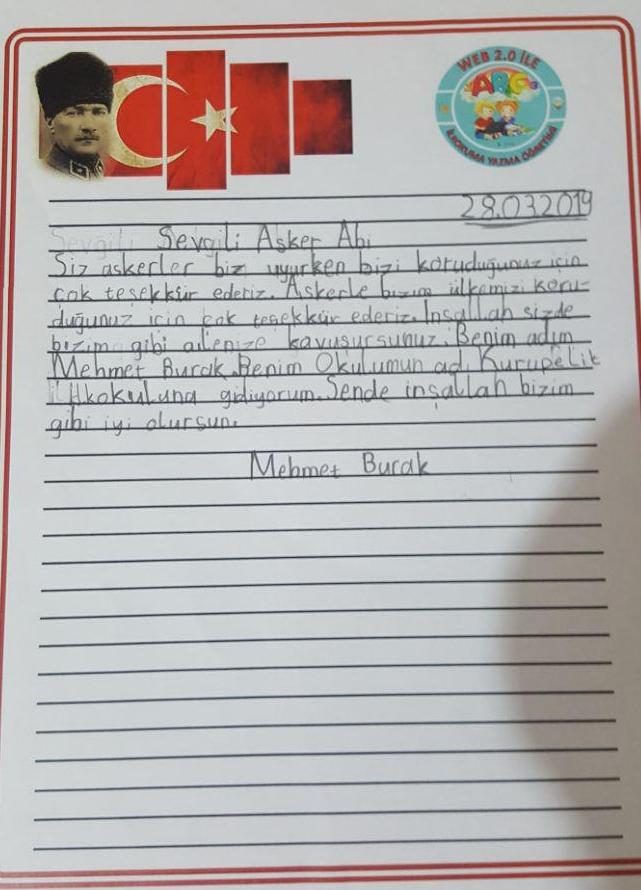 WEB 2.0 İLE
ABC
İLKOKUMA YAZMA ÖĞRETİMİ
28.03.2019
Sevgili Sevgili Asker Abi
Siz askerler biz uyurken bizi koruduğunuz için
çok teşekkür ederiz. Askerle bizim ülkemizi koru-
duğunuz için çok teşekkür ederiz. İnşallah sizde
bizim gibi ailenize kavuşursunuz. Benim adım
Mehmet Burak. Benim Okulumun ad. Kurupelit
İlkokuluna gidiyorum. Sende inşallah bizim
gibi iyi olursun.
Mehmet Burak